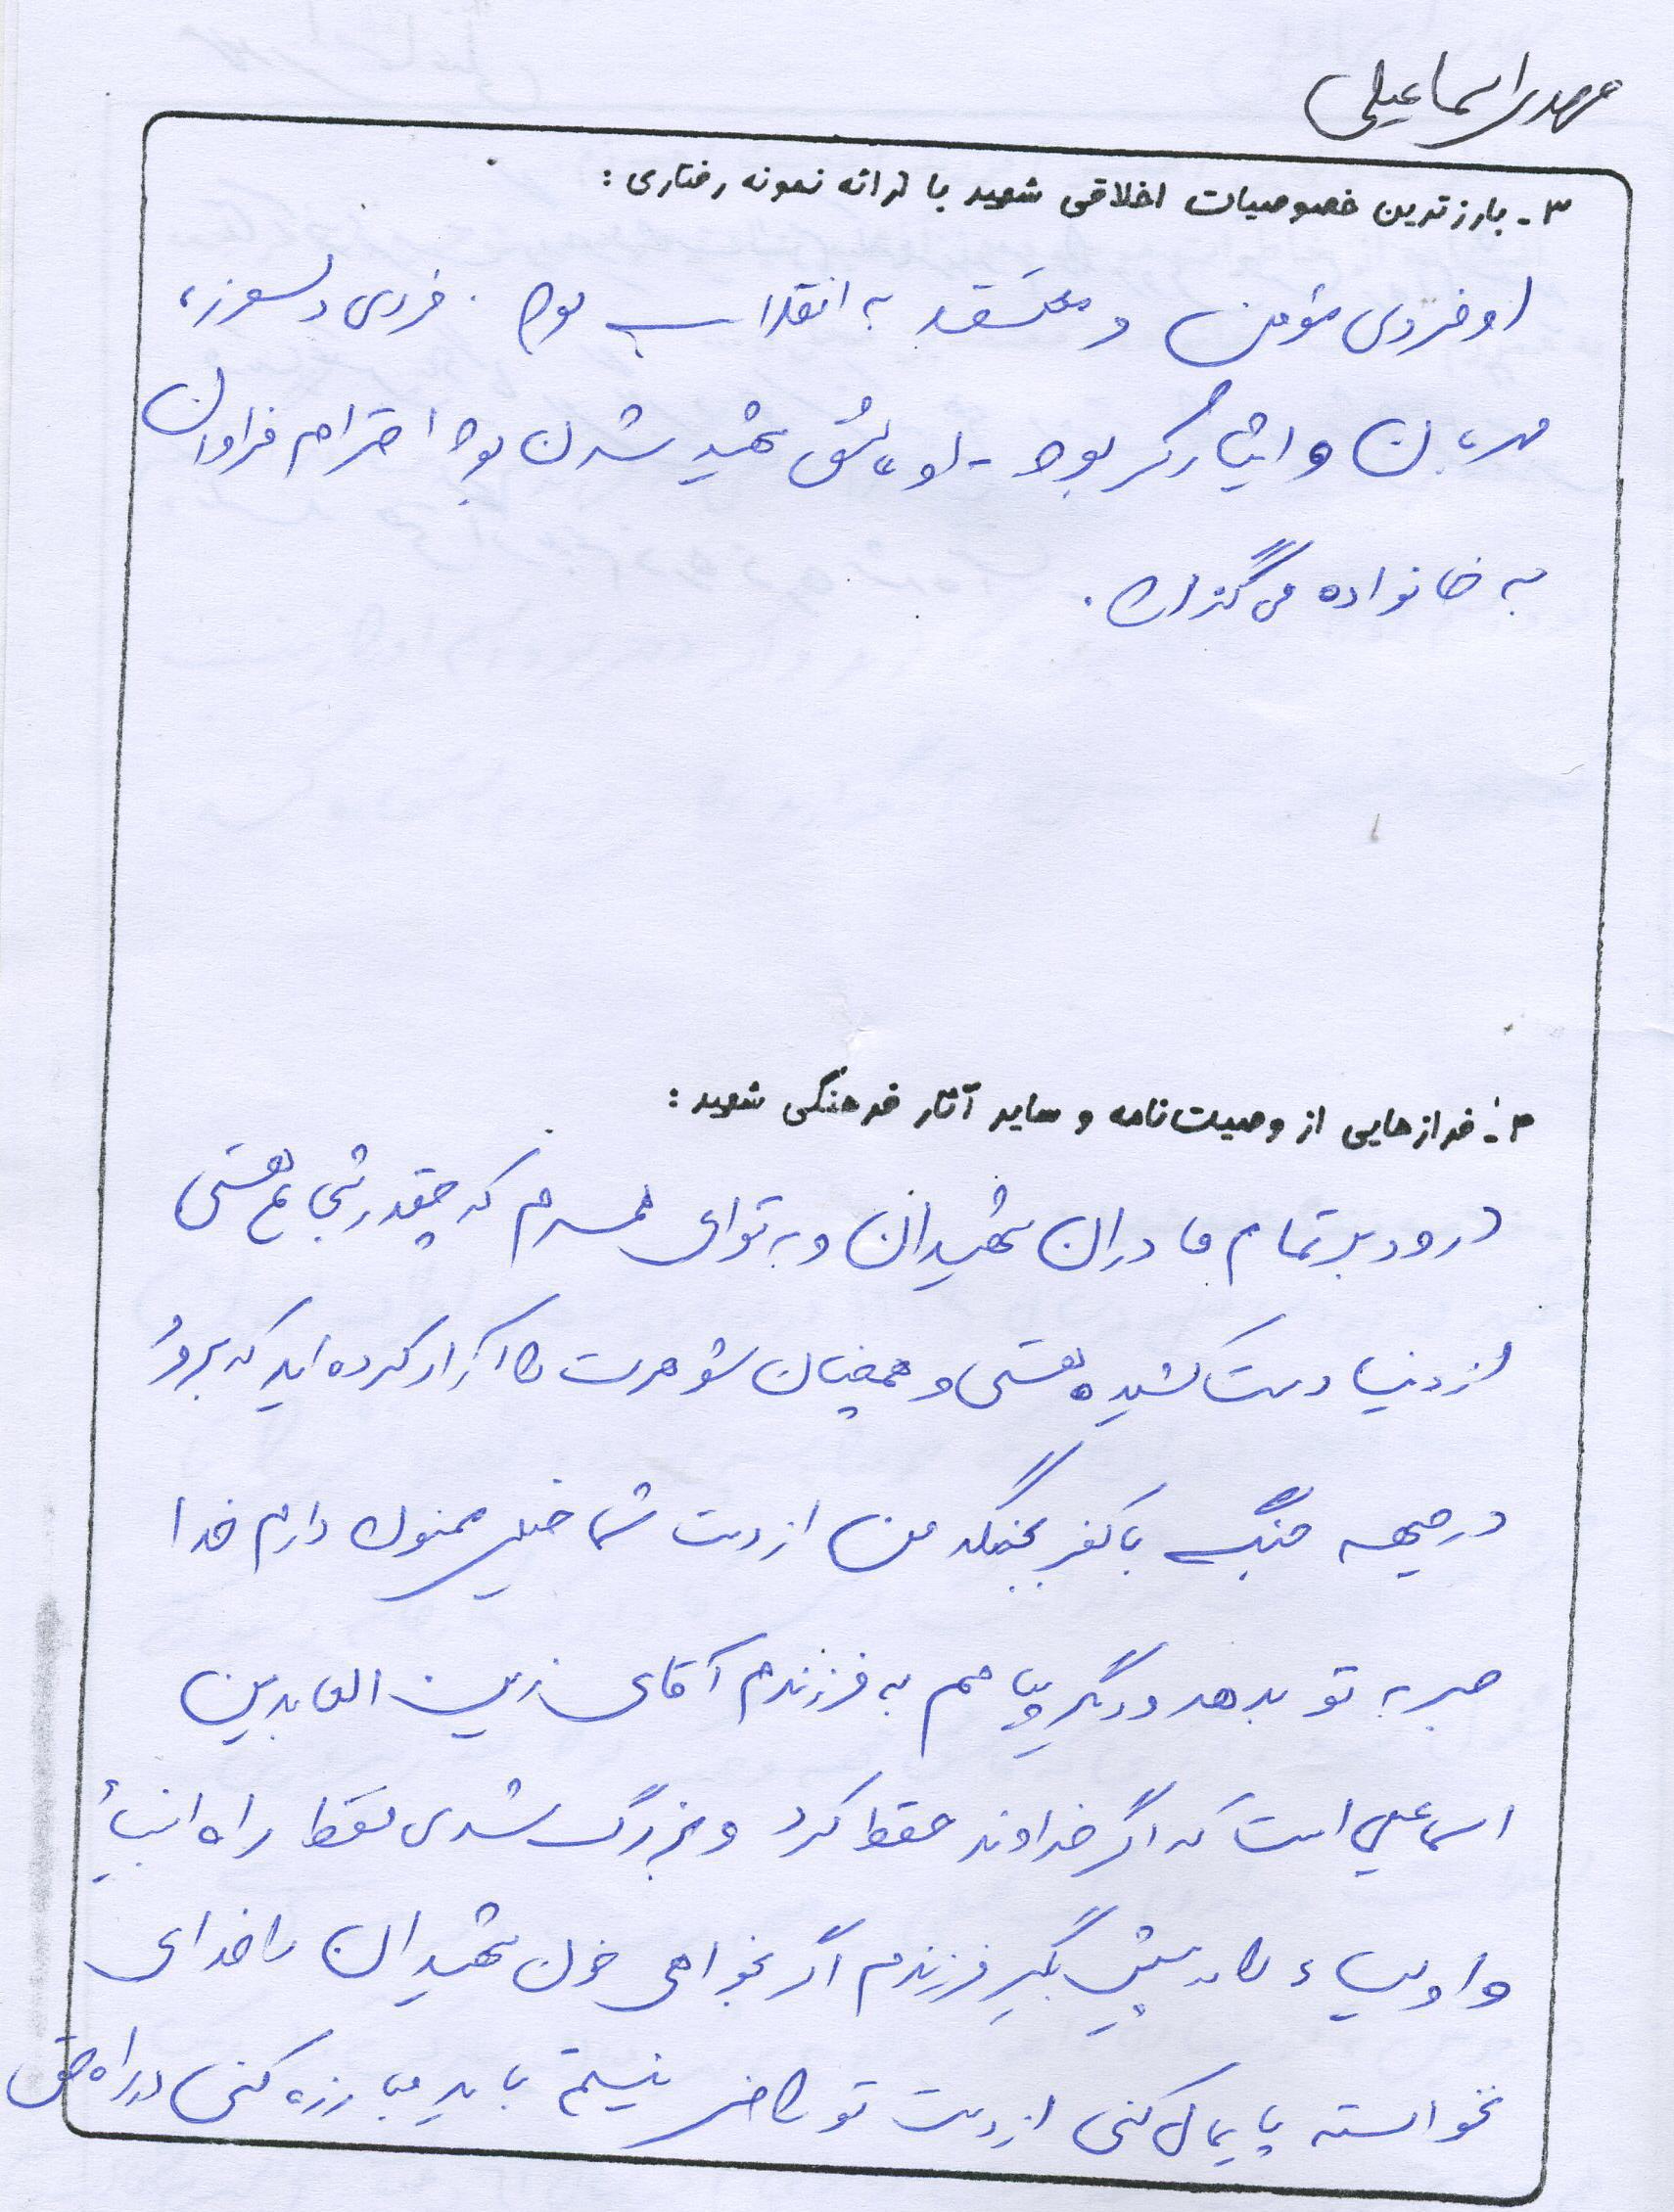 مهدی اسماعیلی
۳- بارزترین خصوصیات اخلاقی شهید با ارائه نمونه رفتاری :
او فردی مؤمن و معتقد به انقلاب بود . فردی دلسوز ،
مهربان و ایثارگر بود - او عاشق شهید شدن بود احترام فراوان
به خانواده می گذارد .
۴- فرازهایی از وصیت‌نامه و سایر آثار فرهنگی شهید :
درود بر تمام مادران شهیدان و به توای همسرم که چقدر شجاع هستی
از دنیا دست کشیده هستی و همچنان شوهرت را آزاد کرده اید که برود
در جبهه جنگ با کفر بجنگد من از دست شما خیلی ممنون دارم خدا
صبر به تو بدهد و دیگر پیامم به فرزندم آقای زین العابدین
اسماعیلی است که اگر خداوند حفظ کرد و بزرگ شدی فقط راه انبیاء
و اولیاء را در پیش بگیر فرزندم اگر بخواهی خون شهیدان را خدای
نخواسته پایمال کنی از دست تو راضی نیستم باید مبارزه کنی در راه حق